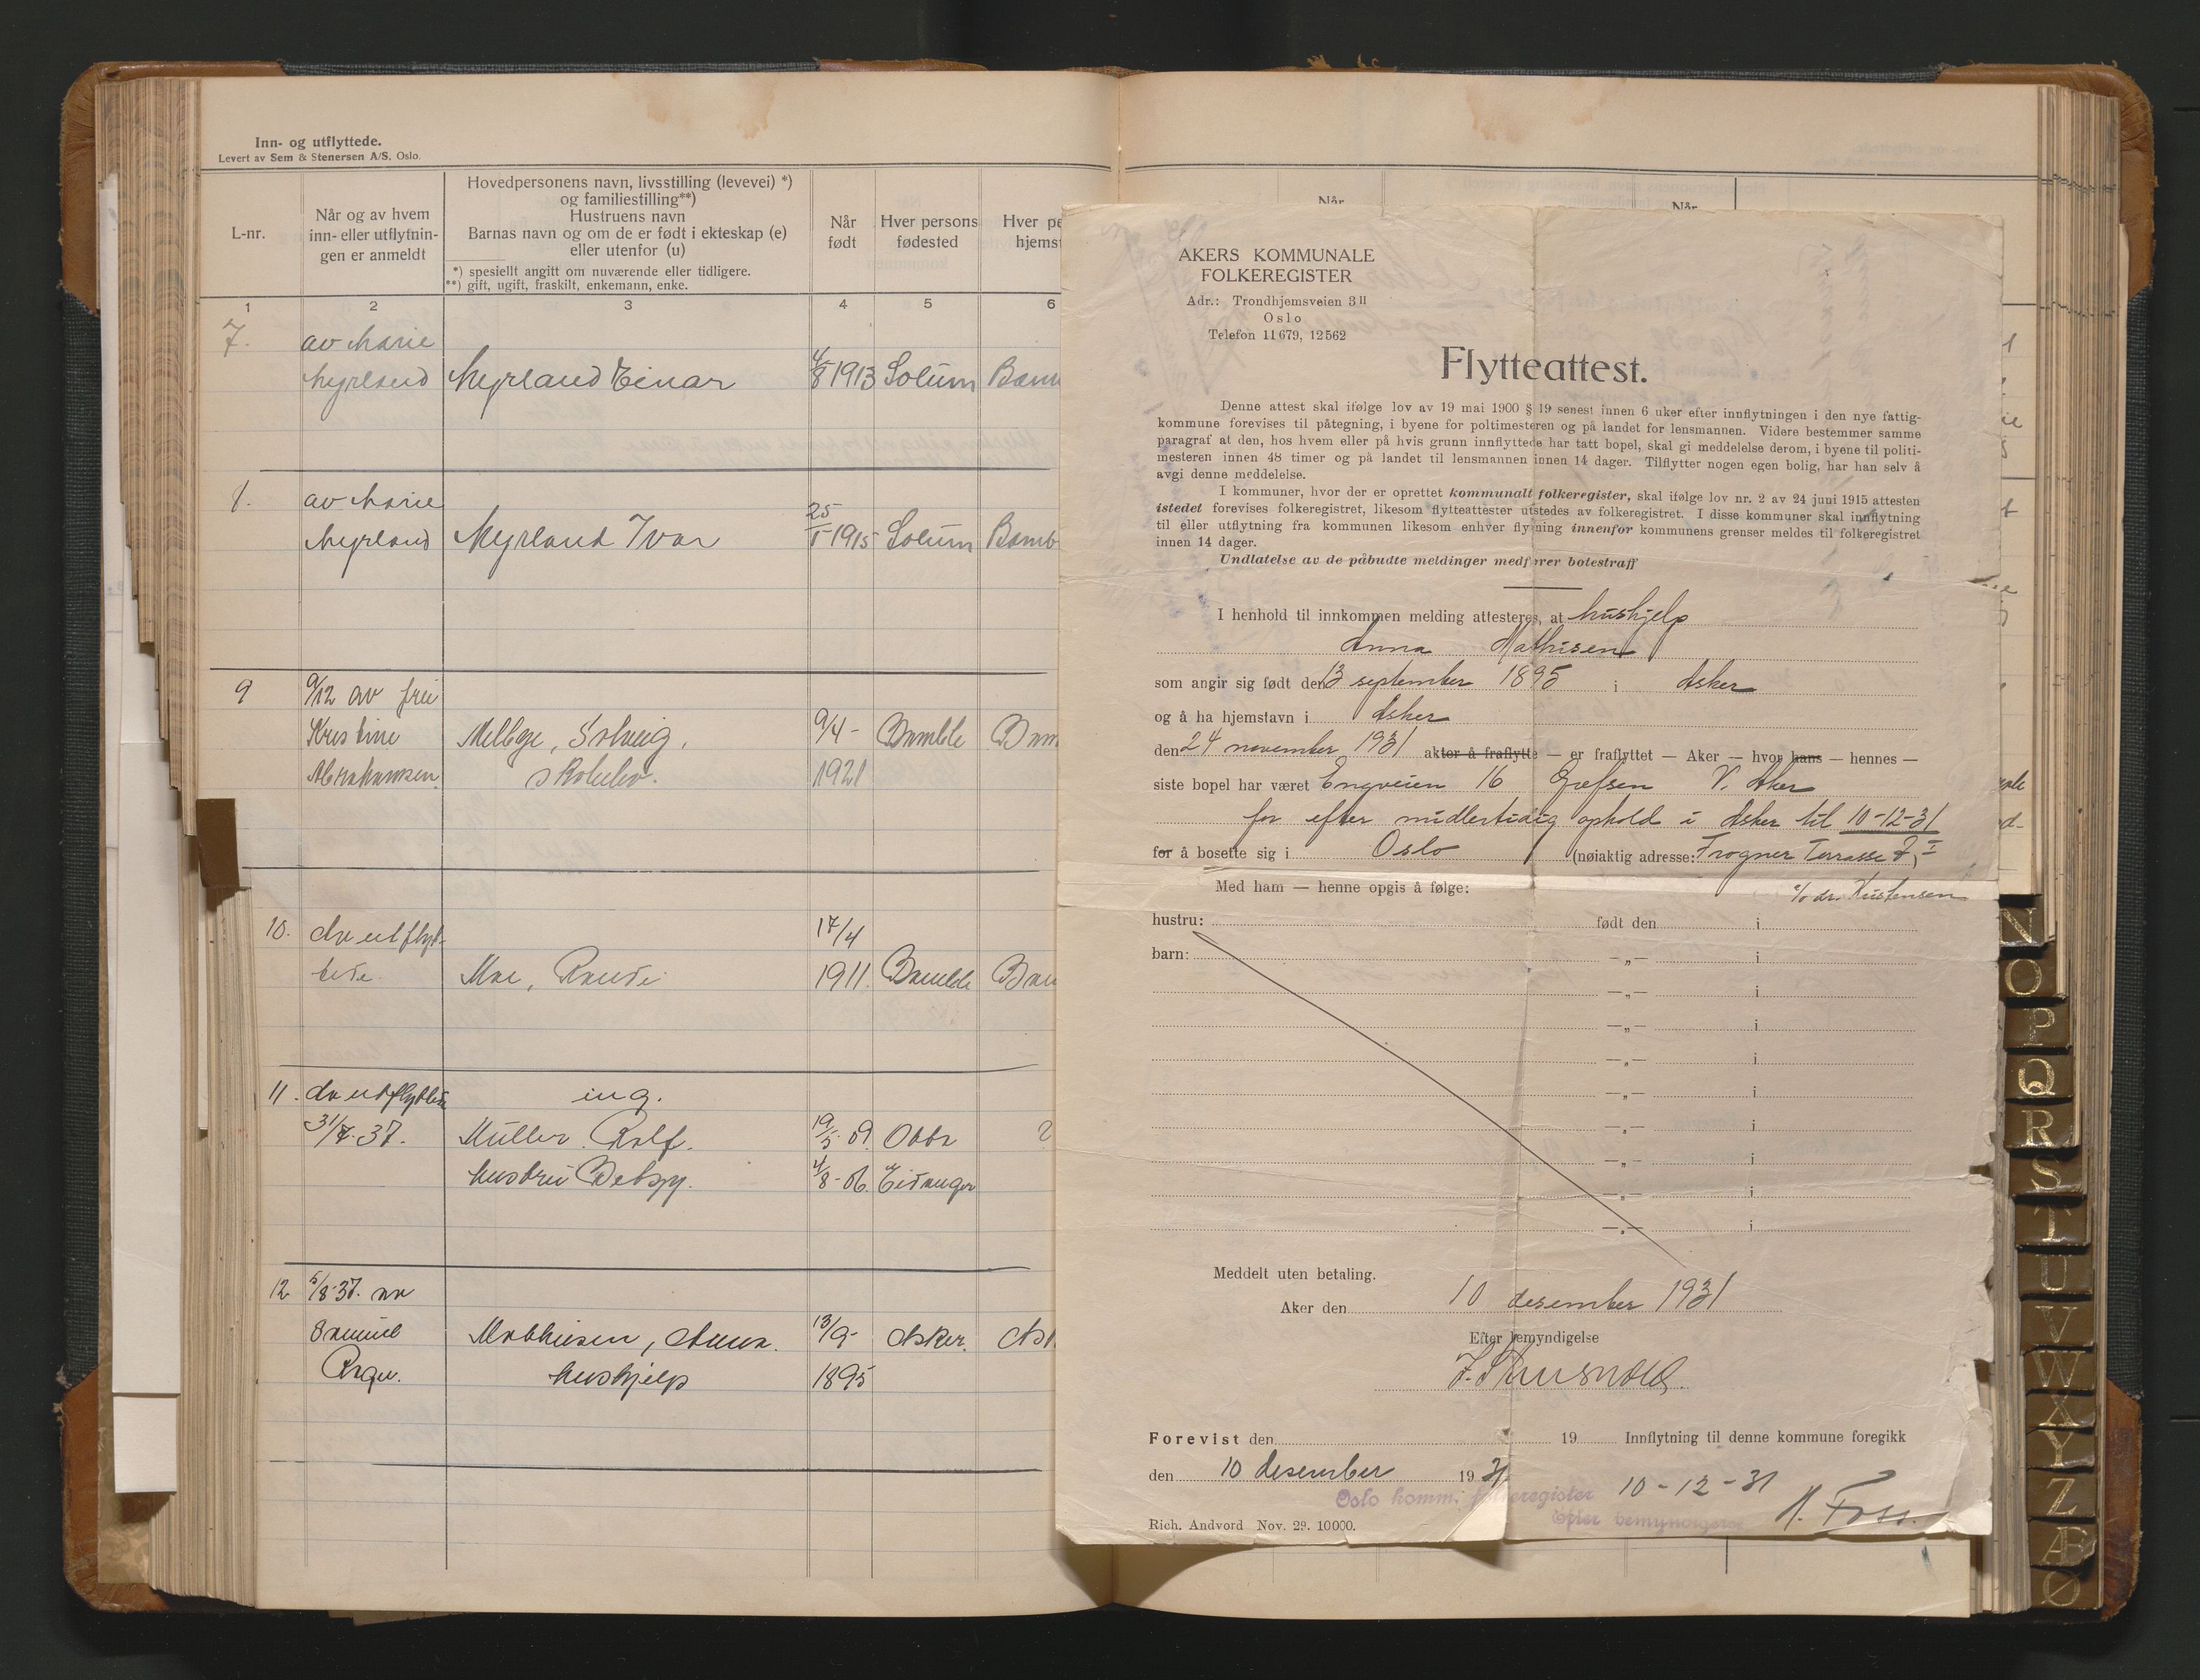 Inn- og utflyttede.
Levert av Sem & Stenersen A/S. Oslo.
L-nr.
Når og av hvem
inn- eller utflytnin-
gen er anmeldt
Hovedpersonens navn, livsstilling (levevei) *)
og familiestilling**)
Hustruens navn
Barnas navn og om de er født i ekteskap (e)
eller utenfor (u)
*) spesiellt angitt om nuværende eller tidligere.
**) gift, ugift, fraskilt, enkemann, enke.
Når
født
Hver persons
fødested
Hver pe
hjemst
1 2 3 4 5 6
7. av Marie
Myrland Myrland Einar 4/8 1913 Solum Bam
8. av Marie
Myrland Myrland Ivar 25/1 1915 Solum Bamb
9 9/12 av fru
Kristine Melbye, Solveig, 9/4 - Bamble Bam
Abrahamsen. skoleelev. 1921
10. Av utflyt- 17/4
tede. Moe, Randi 1911. Bamble Bam
11. Av utflyttede ing.
31/7-37. Müller Rolf. 19/5-09. 2
hustru Betzy. 4/8-06. Eidanger
12 5/8-37. av
Mathiesen, Anna. 13/9- Asker. Ask
hushjelp 1895
Når
Når
AKERS KOMMUNALE
FOLKEREGISTER
Adr.: Trondhjemsveien 3 II
Oslo
Telefon 11679, 12562
Flytteattest.
Denne attest skal ifølge lov av 19 mai 1900 § 19 senest innen 6 uker efter innflytningen i den nye fattig-
kommune forevises til påtegning, i byene for poltimesteren og på landet for lensmannen. Videre bestemmer samme
paragraf at den, hos hvem eller på hvis grunn innflyttede har tatt bopel, skal gi meddelelse derom, i byene til politi-
mesteren innen 48 timer og på landet til lensmannen innen 14 dager. Tilflytter nogen egen bolig, har han selv å
avgi denne meddelelse.
I kommuner, hvor der er oprettet kommunalt folkeregister, skal ifølge lov nr. 2 av 24 juni 1915 attesten
istedet forevises folkeregistret, likesom flytteattester utstedes av folkeregistret. I disse kommuner skal innflytning
til eller utflytning fra kommunen likesom enhver flytning innenfor kommunens grenser meldes til folkeregistret
innen 14 dager.
Undlatelse av de påbudte meldinger medfører botestraff
I henhold til innkommen melding attesteres, at hushjelp
Anna Mathisen
som angir sig født den 13 september 1895 i Asker
og å ha hjemstavn i Asker
den 24 november 1931 akter å fraflytte — er fraflyttet — Aker — hvor hans — hennes —
siste bopel har været Engveien 16 Grefsen V. Aker
for efter midlertidig ophold i Asker til 10-12-31
for å bosette sig i Oslo (nøiaktig adresse: Frogner Terrasse 7, I
Med ham — henne opgis å følge: c/o dr. Kristensen
hustru: født den i
barn: —„— i
—„— i
—„— i
—„— i
—„— i
—„— i
—„— i
—„— i
—„— i
Meddelt uten betaling.
Aker den 10 desember 1931
Efter bemyndigelse
Forevist den 19 Innflytning til denne kommune foregikk
den 10 desember 1931 10-12-31
Oslo komm. folkeregister
Efter bemyndigelse H. Foss.
Rich. Andvord Nov. 29. 10000.
N
O
P
Q
R
S
T
U
V
W
X
Y
Z
Æ
Ø